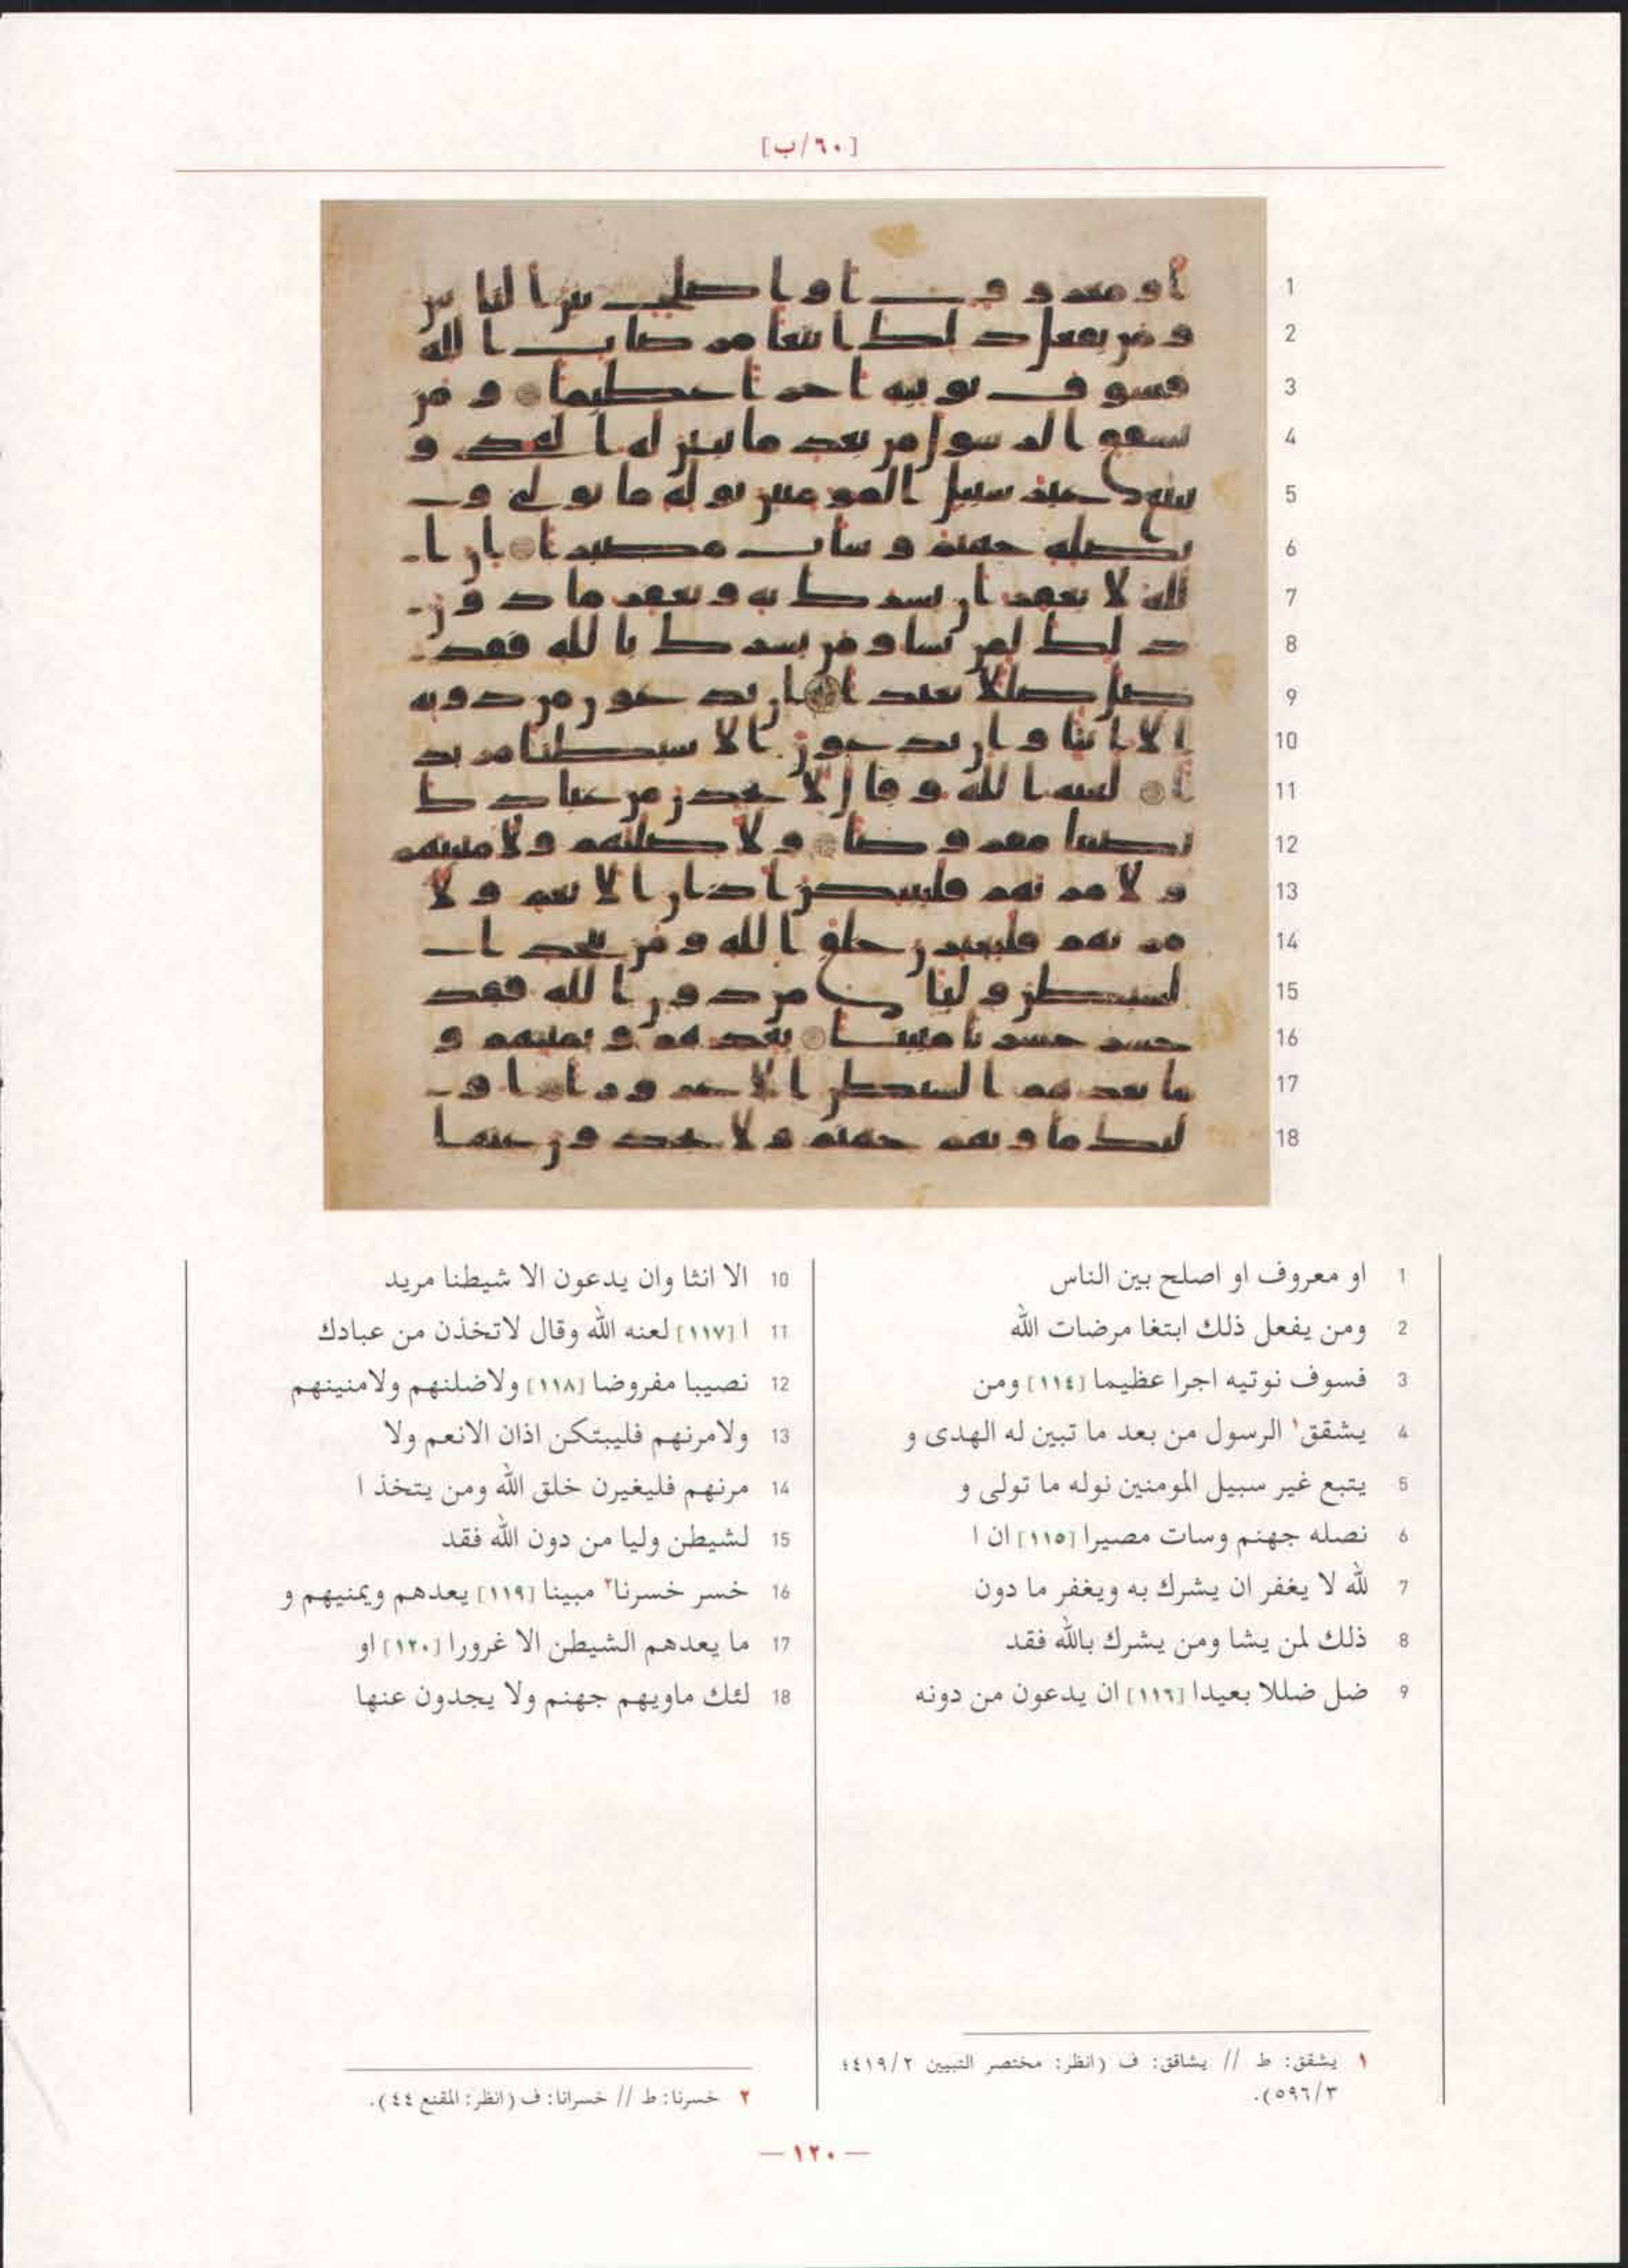 [٦٠/ب]
1 او معروف او اصلح بين الناس
2 ومن يفعل ذلك ابتغا مرضات الله
3 فسوف نوتيه اجرا عظيما [١١٤] ومن
4 يشقق١ الرسول من بعد ما تبين له الهدى و
5 يتبع غير سبيل المومنين نوله ما تولى و
6 نصله جهنم وسات مصيرا [١١٥] ان ا
7 لله لا يغفر ان يشرك به ويغفر ما دون
8 ذلك لمن يشا ومن يشرك بالله فقد
9 ضل ضللا بعيدا [١١٦] ان يدعون من دونه
10 الا انثا وان يدعون الا شيطنا مريد
11 ا [١١٧] لعنه الله وقال لاتخذن من عبادك
12 نصيبا مفروضا [١١٨] ولاضلنهم ولامنينهم
13 ولامرنهم فليبتكن اذان الانعم ولا
14 مرنهم فليغيرن خلق الله ومن يتخذ ا
15 لشيطن وليا من دون الله فقد
16 خسر خسرنا٢ مبينا [١١٩] يعدهم ويمنيهم و
17 ما يعدهم الشيطن الا غرورا [١٢٠] او
18 لئك ماويهم جهنم ولا يجدون عنها
١ يشقق: ط // يشاقق: ف (انظر: مختصر التبيين ٤١٩/٢؛
٥٩٦/٣).
٢ خسرنا: ط // خسرانا: ف (انظر: المقنع ٤٤).
— ١٢٠ —